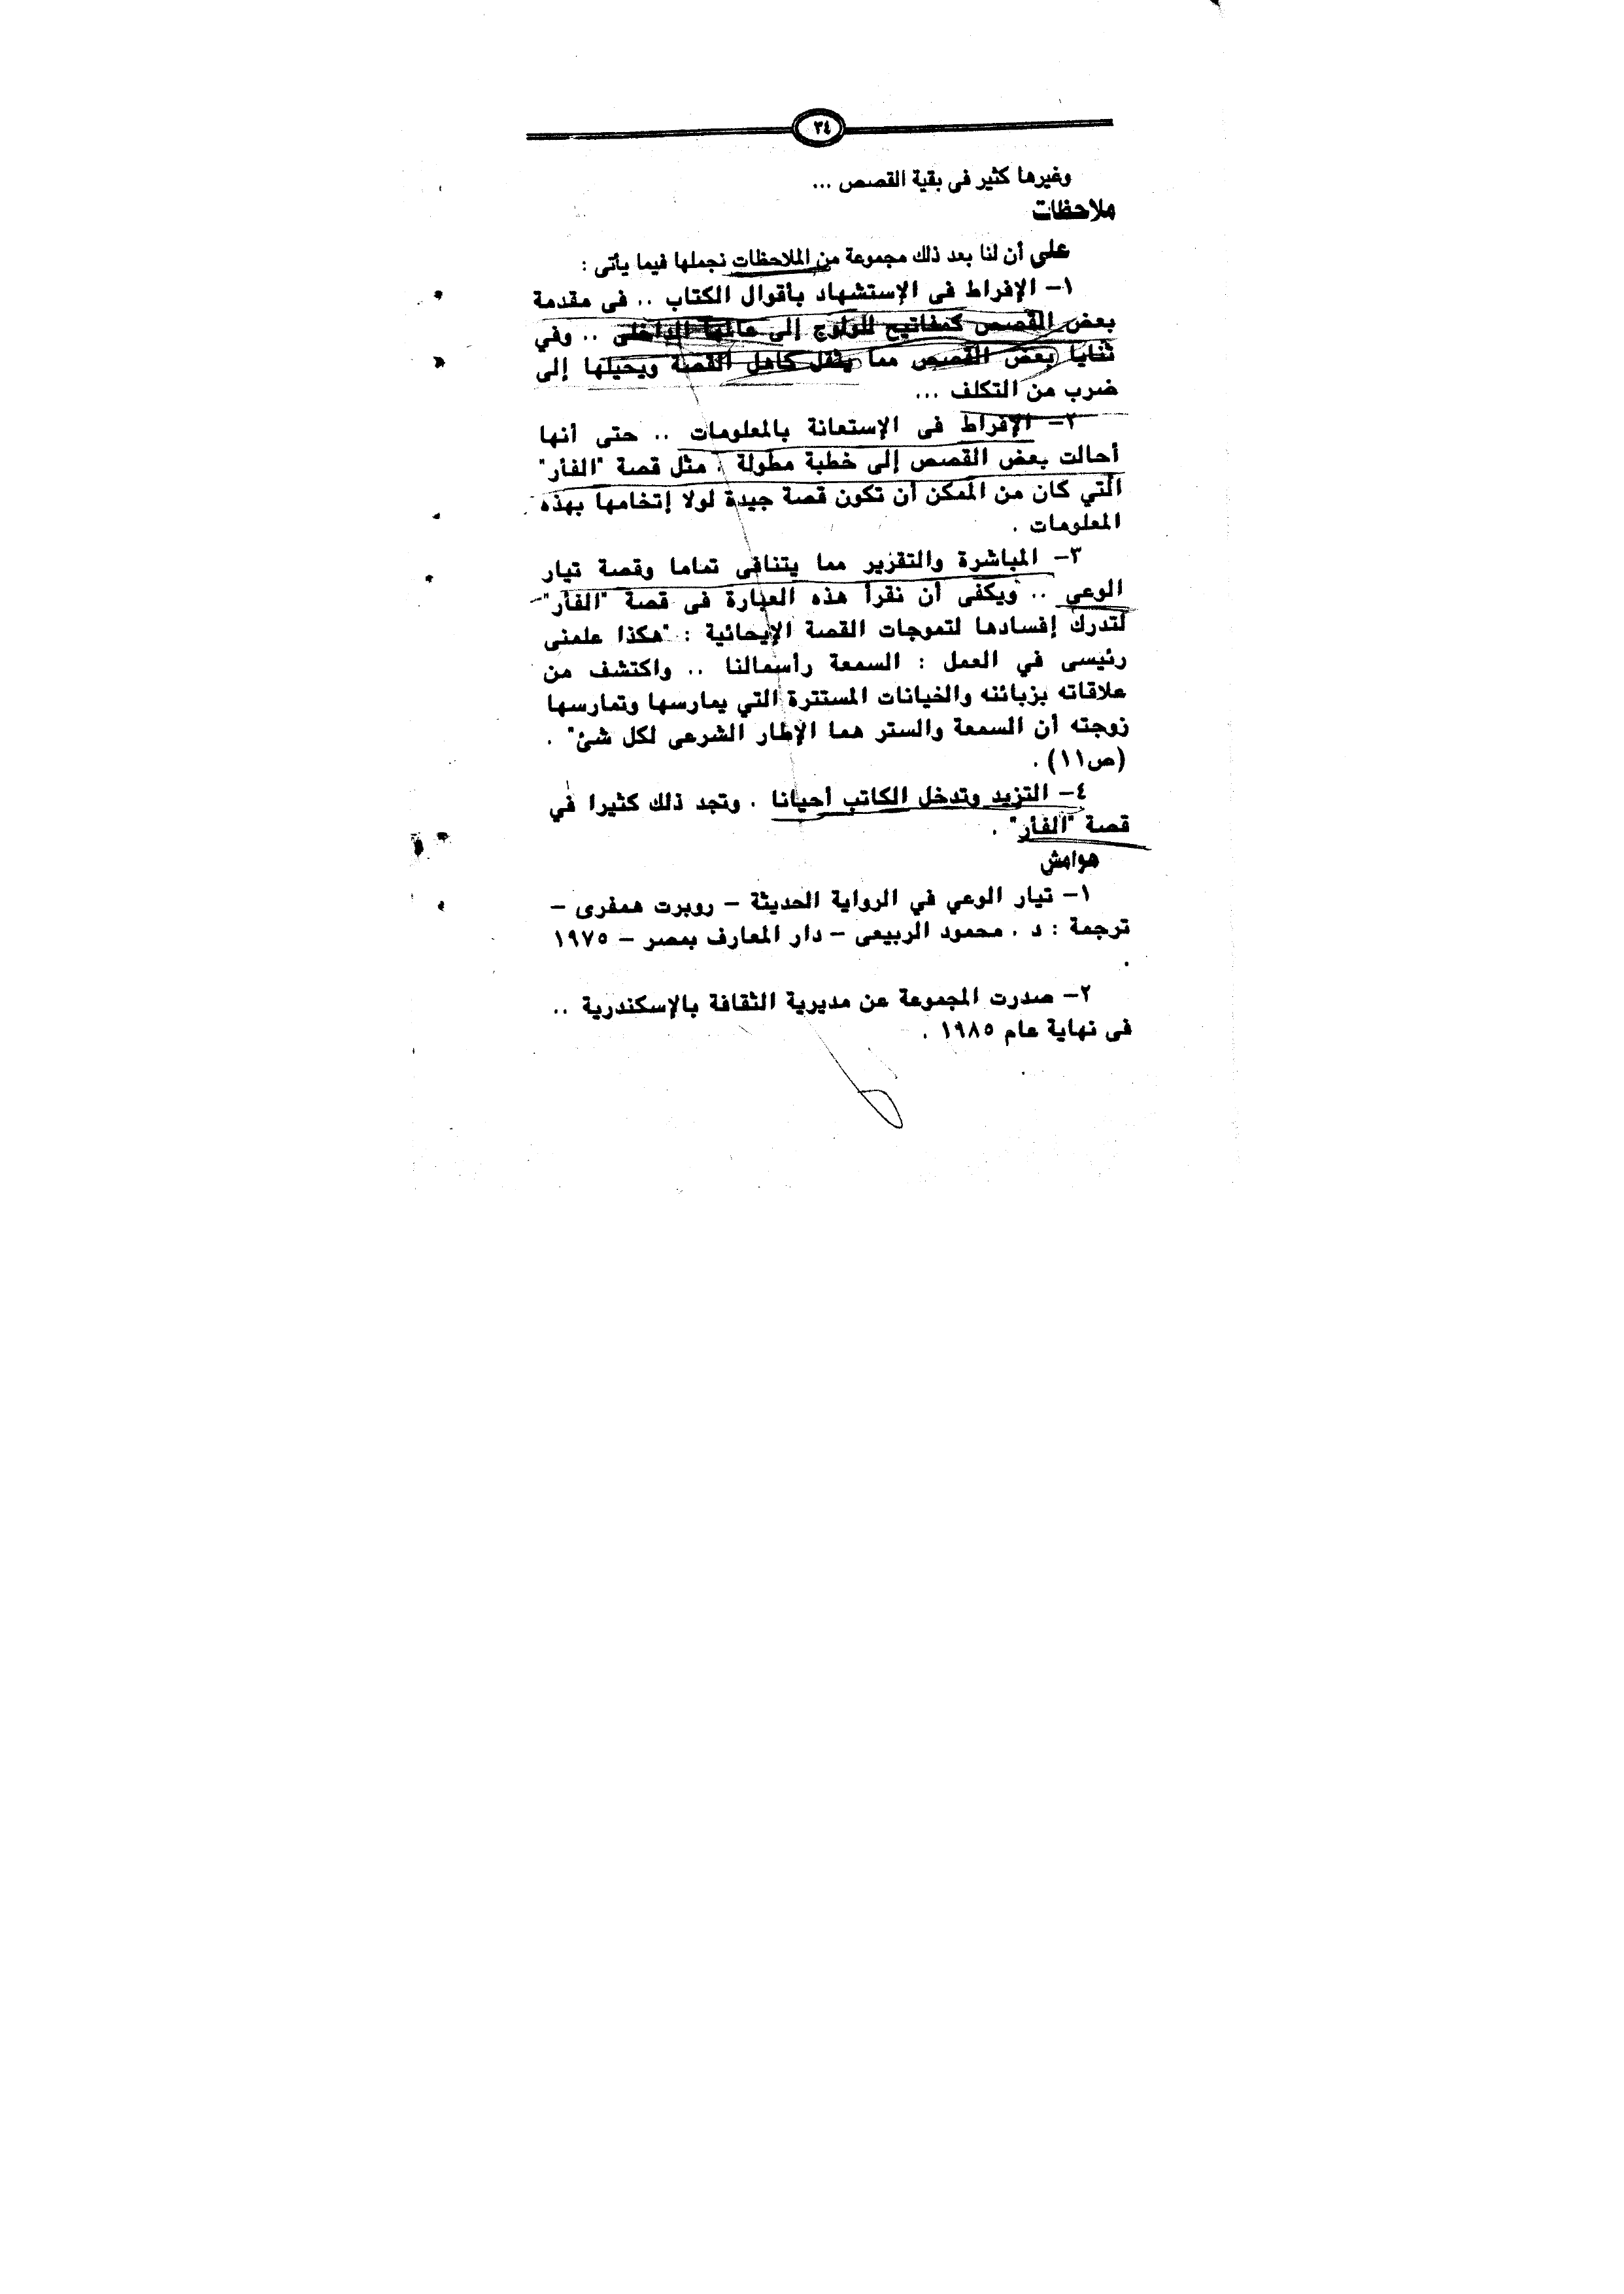 ٣٤
وغيرها كثير فى بقية القصص ...
ملاحظات
على أن لنا بعد ذلك مجموعة من الملاحظات نجملها فيما يأتى :
١- الإفراط فى الإستشهاد بأقوال الكتاب .. فى مقدمة
بعض القصص كمفاتيح للولوج إلى عالمها الداخلى .. وفي
ثنايا بعض القصص مما يثقل كاهل القصة ويحيلها إلى
ضرب من التكلف ...
٢- الإفراط فى الإستعانة بالمعلومات .. حتى أنها
أحالت بعض القصص إلى خطبة مطولة . مثل قصة "الفأر"
التي كان من الممكن أن تكون قصة جيدة لولا إتخامها بهذه
المعلومات .
٣- المباشرة والتقرير مما يتنافى تماما وقصة تيار
الوعي .. ويكفى أن نقرأ هذه العبارة فى قصة "الفأر"
لتدرك إفسادها لتموجات القصة الإيحائية : "هكذا علمنى
رئيسى في العمل : السمعة رأسمالنا .. واكتشف من
علاقاته بزبائنه والخيانات المستترة التي يمارسها وتمارسها
زوجته أن السمعة والستر هما الإطار الشرعى لكل شئ" .
(ص١١) .
٤- التزيد وتدخل الكاتب أحيانا . وتجد ذلك كثيرا في
قصة "الفأر" .
هوامش
١- تيار الوعي في الرواية الحديثة – روبرت همفرى –
ترجمة : د . محمود الربيعى – دار المعارف بمصر – ١٩٧٥
.
٢- صدرت المجموعة عن مديرية الثقافة بالإسكندرية ..
فى نهاية عام ١٩٨٥ .